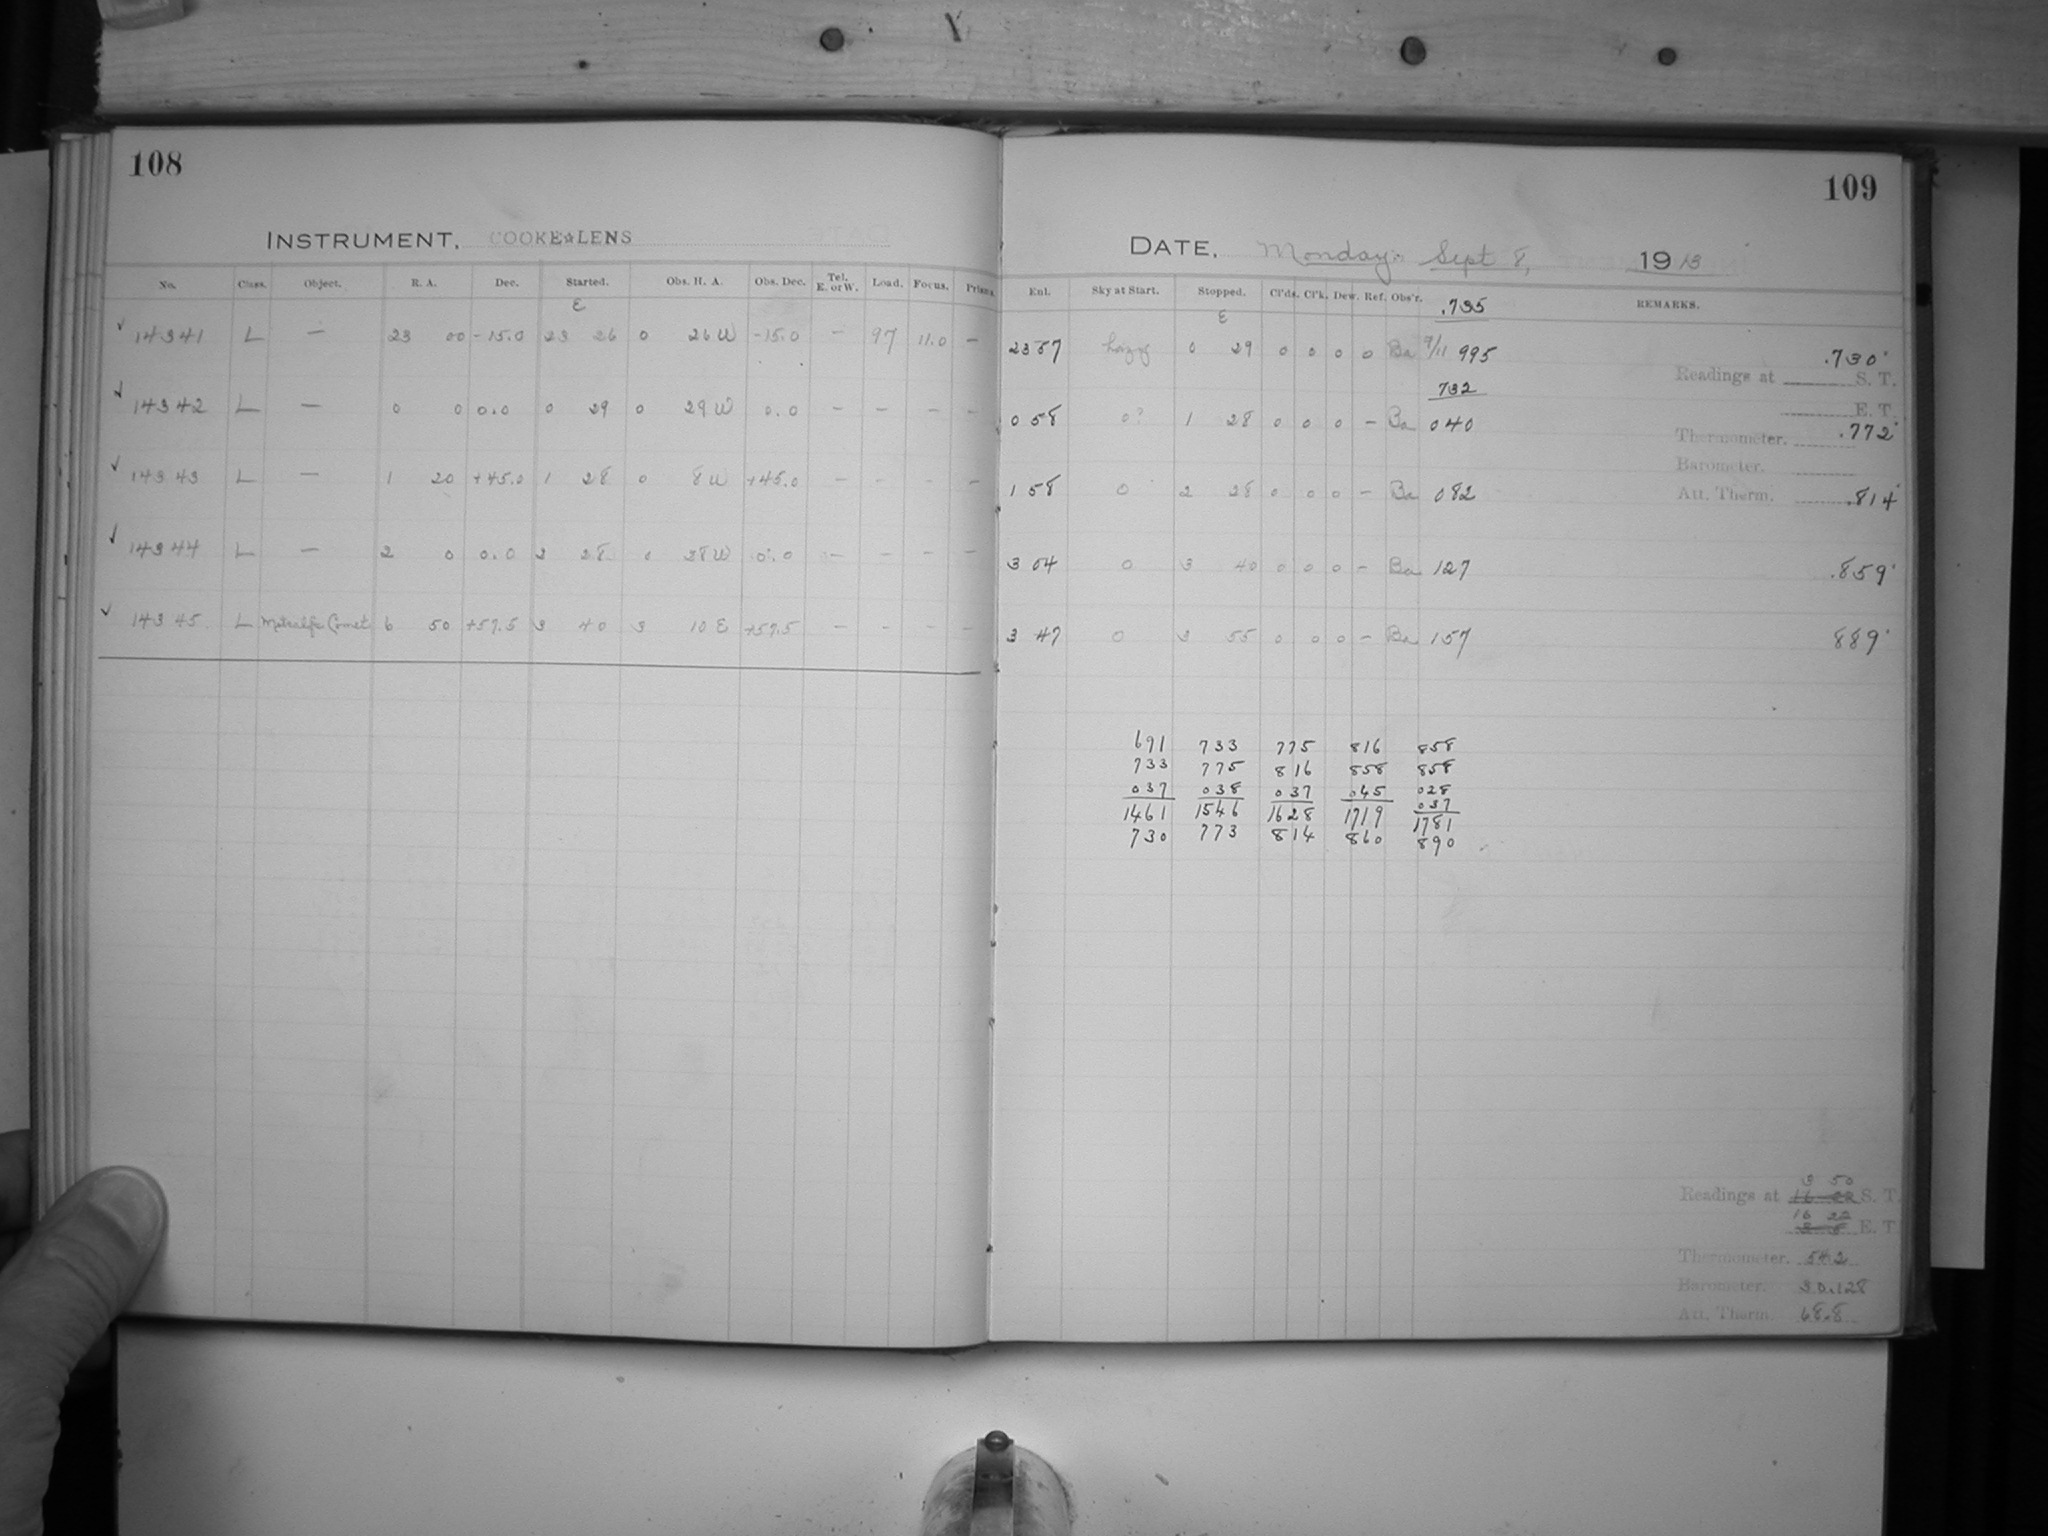 108
INSTRUMENT. COOKE☆LENS
No. Class. Object. R. A. Dec. Started. Obs. H. A. Obs. Dec. Tel. E. or W. Load. Focus. Prisms.
E
✓ 14341 L — 23 00 -15.0 23 26 0 26 W -15.0 — 97 11.0 —
✓ 14342 L — 0 0 0.0 0 29 0 29 W 0.0 — — — —
✓ 14343 L — 1 20 +45.0 1 28 0 8 W +45.0 — — — —
✓ 14344 L — 2 0 0.0 2 28 0 28 W 0.0 — — — —
✓ 14345 L Metcalf's Comet 6 50 +57.5 3 40 3 10 E +57.5 — — — —
109
DATE. Monday Sept 8, 1913
Enl. Sky at Start. Stopped. Cl'ds. Cl'k. Dew. Ref. Obs'r. .735 REMARKS.
E
23 57 hazy 0 29 0 0 0 0 Ba 9/11 995 .730
Readings at S. T.
732
E. T.
0 58 0? 1 28 0 0 0 — Ba 040 .772
Thermometer.
Barometer.
1 58 0 2 28 0 0 0 — Ba 082 .814
Att. Therm.
3 04 0 3 40 0 0 0 — Ba 127 .859
3 47 0 3 55 0 0 0 — Ba 157 889
691 733 775 816 858
733 775 816 858 858
037 038 037 045 028
037
1461 1546 1628 1719 1781
730 773 814 860 890
3 50
Readings at 16 22 S. T.
16 22
3 8 E. T.
Thermometer. 54.2
Barometer. 30.128
Att. Therm. 68.8